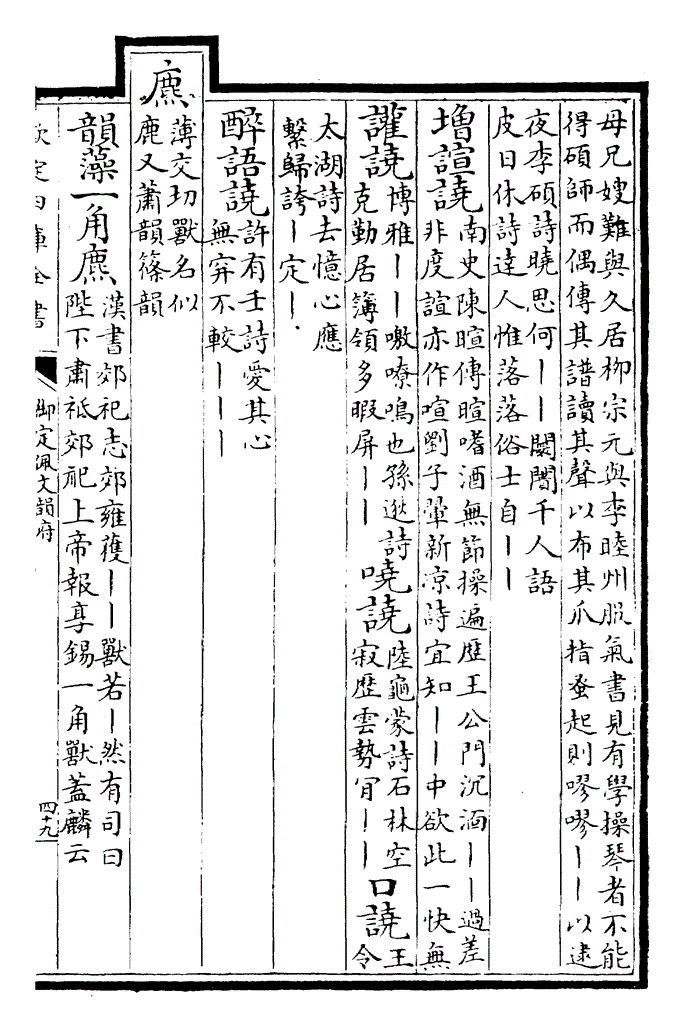 母兄嫂難與久居栁宗元與李睦州服氣書見有學操琴者不能
得碩師而偶傳其譜讀其聲以布其爪指蚤起則嘐嘐丨丨以逮
夜李碩詩曉思何丨丨闤闠千人語
皮日休詩達人惟落落俗士自丨丨
增諠譊南史陳暄傳暄嗜酒無節操遍歴王公門沉湎丨丨過差
非度諠亦作喧劉子翬新凉詩宜知丨丨中欲此一快無
讙譊博雅丨丨噭嘹鳴也孫逖詩
克勤居簿領多暇屏丨丨
嘵譊陸龜蒙詩石林空
寂歴雲勢肎丨丨
口譊王
令
太湖詩去憶心應
繫歸誇丨定丨
醉語譊許有壬詩愛其心
無穽不較丨丨丨
麃薄交切獸名似
鹿又蕭韻篠韻
韻藻一角麃漢書郊祀志郊雍獲丨丨獸若丨然有司曰
陛下肅祗郊祀上帝報享錫一角獸蓋麟云
欽定四庫全書
御定佩文韻府
四十九